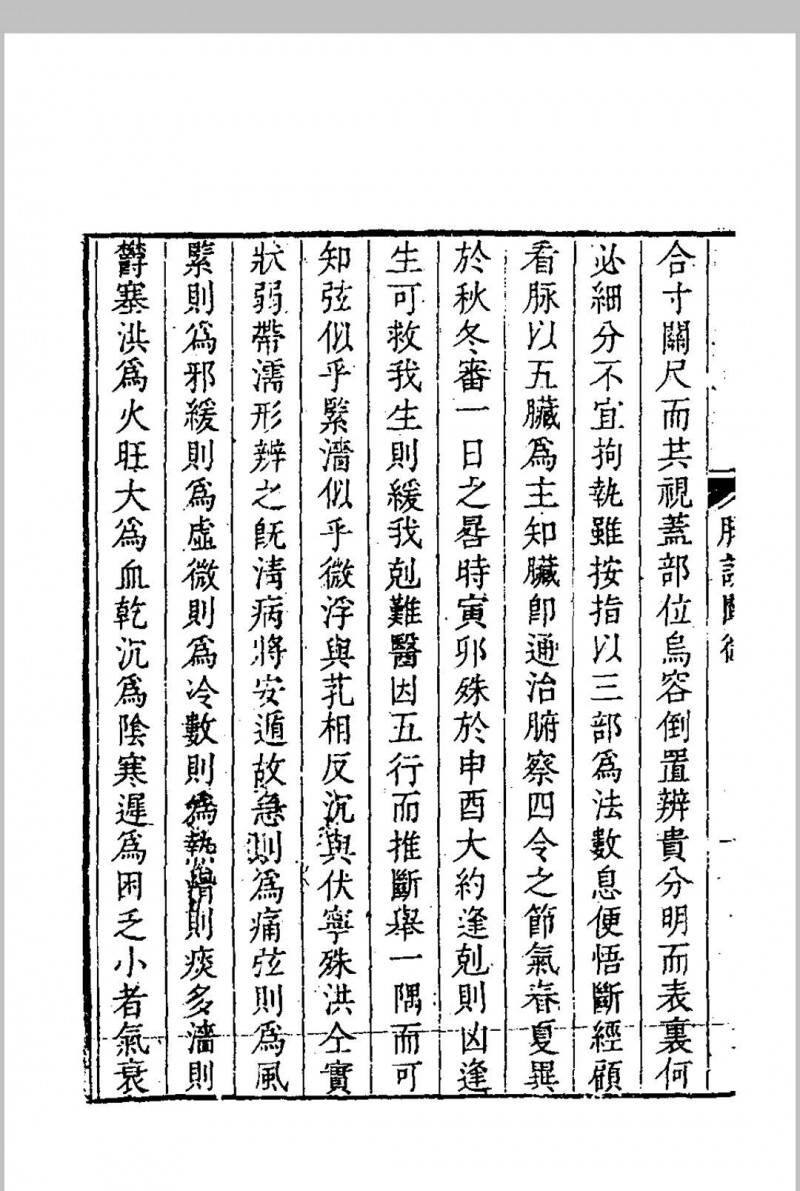 合寸關尺而共視蓋部位烏容倒置辨貴分明而表裏何
必細分不宜拘執雖按指以三部爲法數息便悟斷經顧
看脉以五臟爲主知臟卽通治腑察四令之節氣春夏異
於秋冬審一日之晷時寅卯殊於申酉大約逢剋則凶逢
生可救我生則緩我剋難醫因五行而推斷舉一隅而可
知弦似乎緊濇似乎微浮與芤相反沉與伏寧殊洪仝實
狀弱帶濡形辨之旣淸病將安遁故急則爲痛弦則爲風
緊則爲邪緩則爲虛微則爲冷數則爲熱滑則痰多濇則
欝塞洪爲火旺大爲血乾沉爲陰寒遲爲困乏小者氣衰